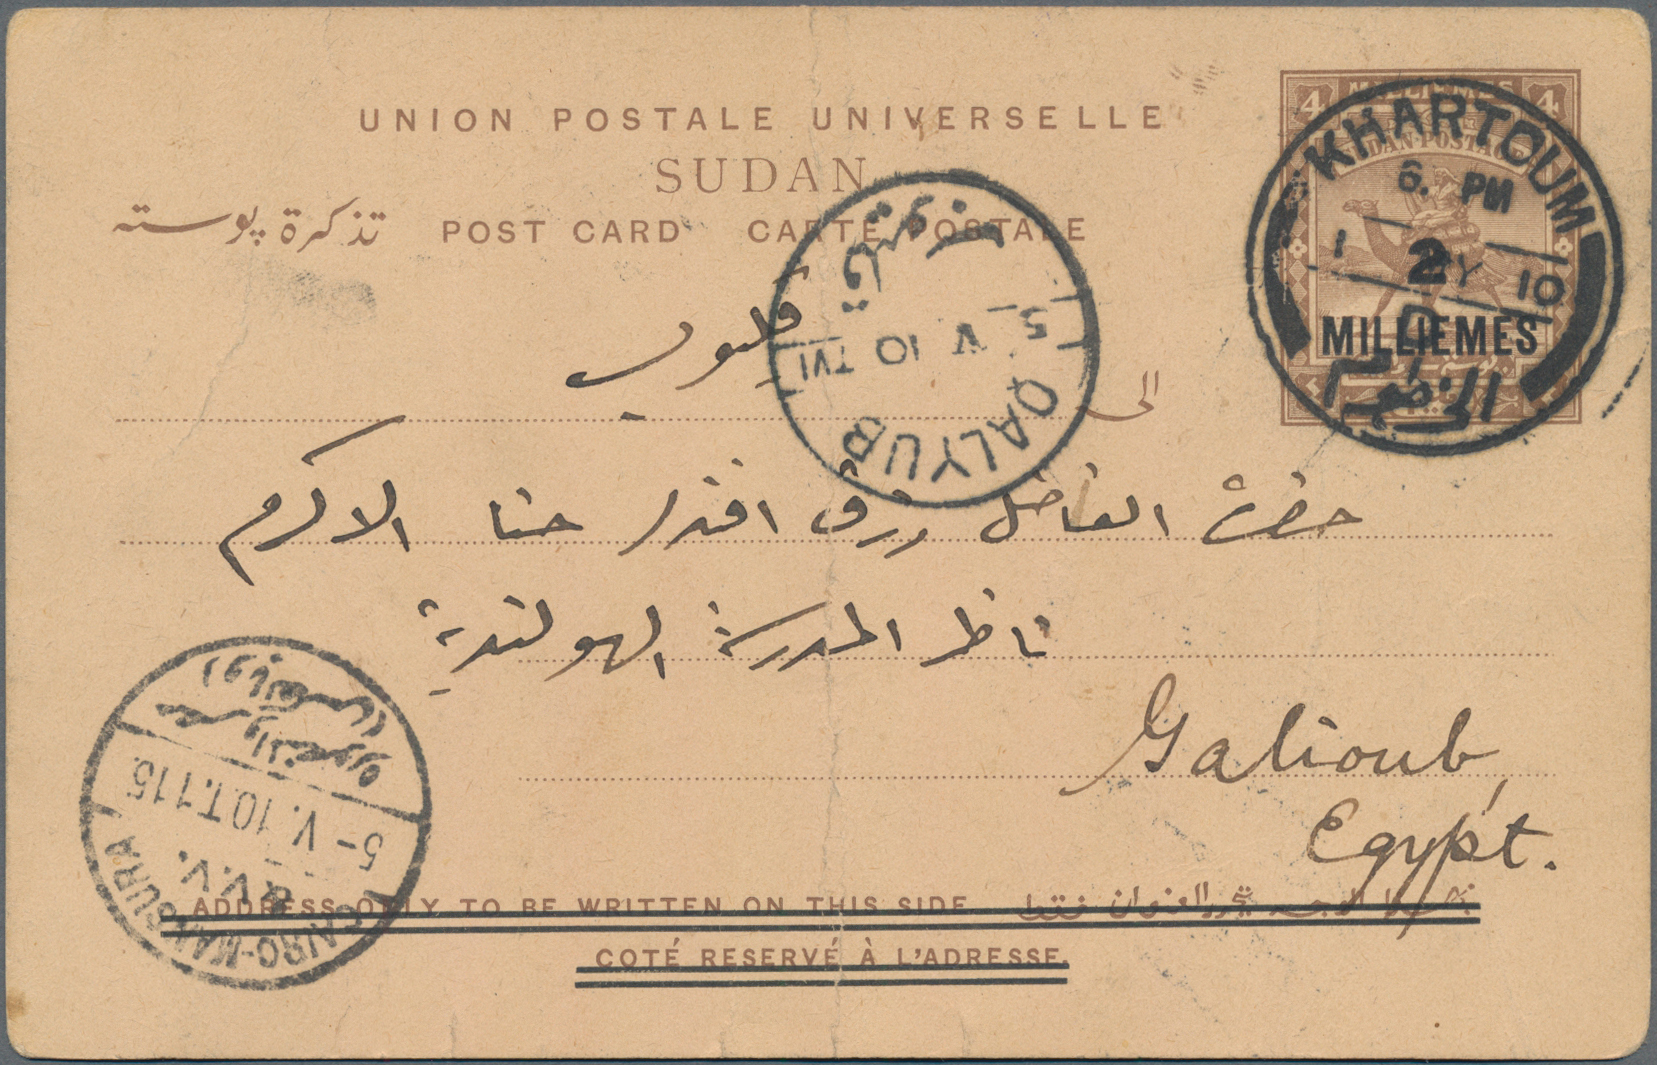 UNION POSTALE UNIVERSELLE
SUDAN
تذكرة پوسته POST CARD CARTE POSTALE
4 MILLIEMES 4
SUDAN POSTAGE
2
MILLIEMES
KHARTOUM
6. PM
1 MY 10
D
الخرطوم
قليوب
5 V 10 T VI
QALYUB
الى
قليوب
حضرة الفاضل رزق افندى حنا الاكرم
ناظر المدرسة الهولندية
Galioub,
Egypt.
5 - V. 10. T. 115
& V.V.
CAIRO-MANSOURA
ADDRESS ONLY TO BE WRITTEN ON THIS SIDE
COTÉ RESERVÉ À L'ADRESSE.